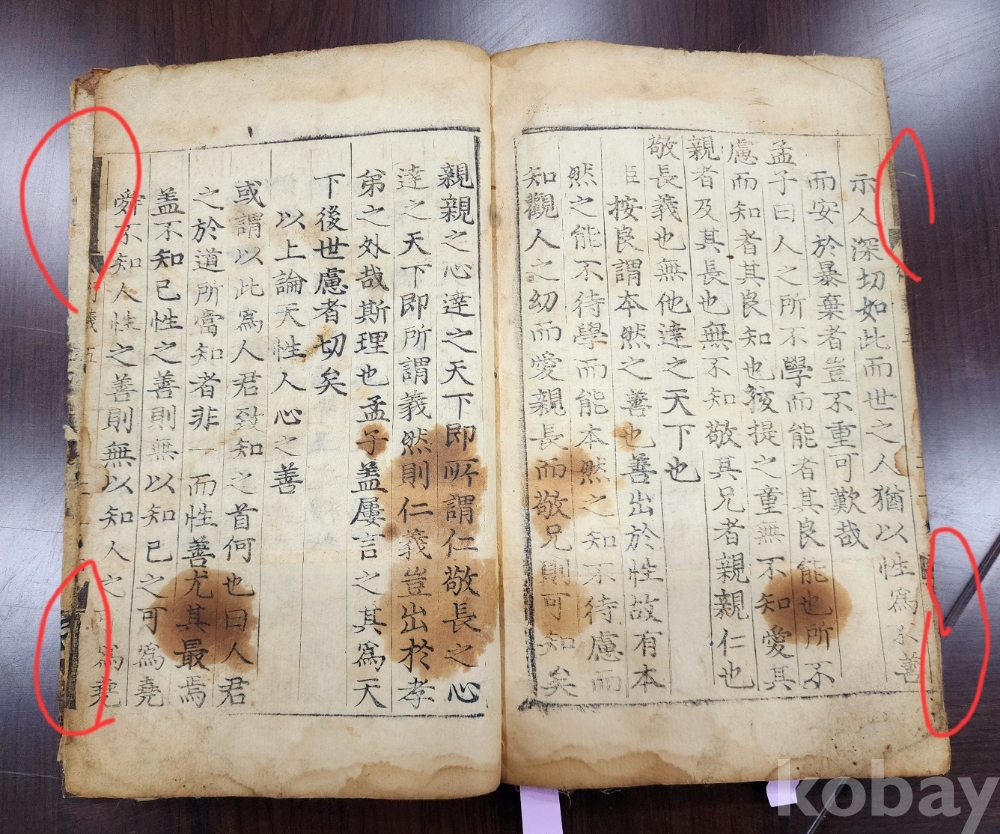 示人深切如此而世之人猶以性爲不善
而安於暴棄者豈不重可歎哉
孟子曰人之所不學而能者其良能也所不
慮而知者其良知也孩提之童無不知愛其
親者及其長也無不知敬其兄者親親仁也
敬長義也無他達之天下也
臣按良謂本然之善也善出於性故有本
然之能不待學而能本然之知不待慮而
知觀人之幼而愛親長而敬兄則可知矣
親親之心達之天下即所謂仁敬長之心
達之天下即所謂義然則仁義豈出於孝
第之外哉斯理也孟子盖屢言之其爲天
下後世慮者切矣
以上論天性人心之善
或謂以此爲人君致知之首何也曰人君
之於道所當知者非一而性善尤其最焉
盖不知己性之善則無以知己之可爲堯
舜不知人性之善則無以知人之爲堯
義五
kobay